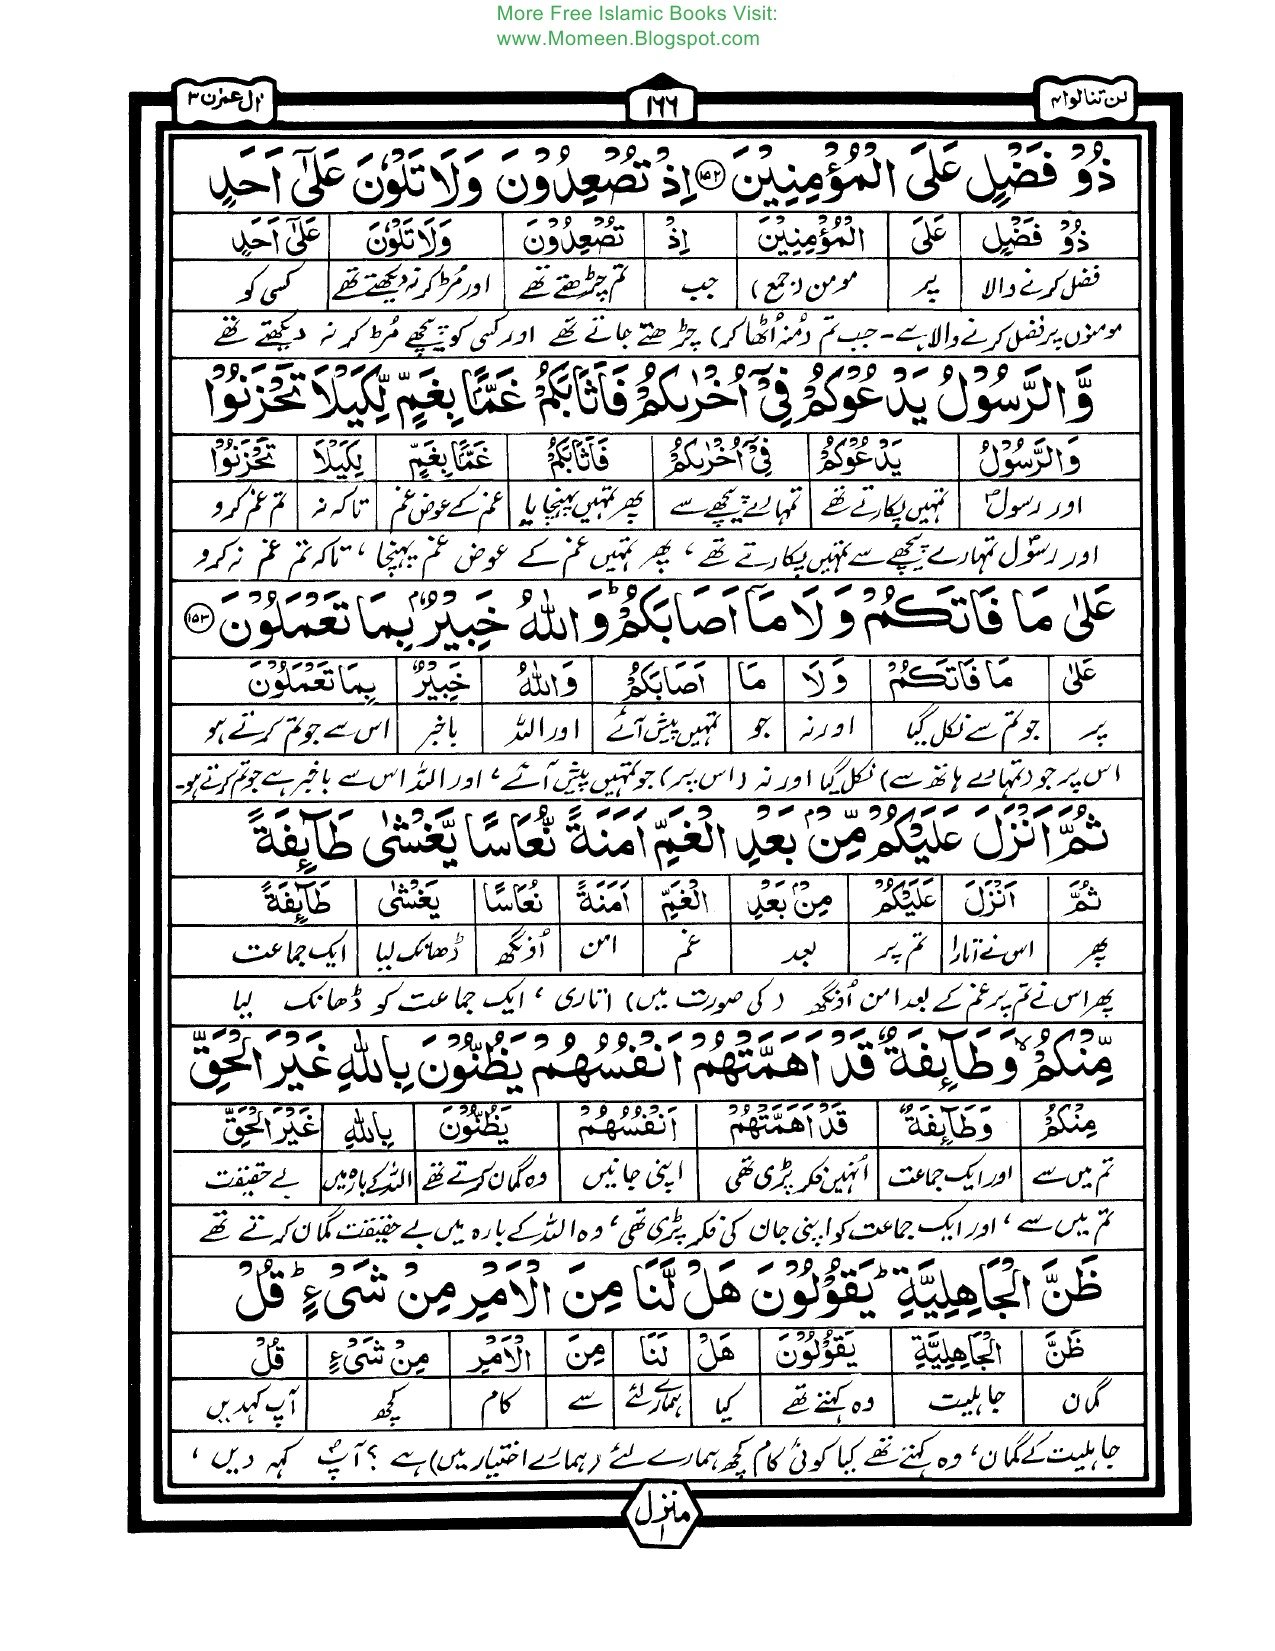 More Free Islamic Books Visit:
www.Momeen.Blogspot.com
لن تنالوا ۴
۱۶۶
اٰل عمرٰن ۳
ذُوْ فَضْلٍ عَلَى الْمُؤْمِنِيْنَ ۝۱۵۲ اِذْ تُصْعِدُوْنَ وَلَا تَلْوٗنَ عَلٰٓى اَحَدٍ
ذُوْ فَضْلٍ عَلَى الْمُؤْمِنِيْنَ اِذْ تُصْعِدُوْنَ وَلَا تَلْوٗنَ عَلٰٓى اَحَدٍ
فضل کرنے والا پر مومن (جمع) جب تم چڑھتے تھے اور مُڑ کر نہ دیکھتے تھے کسی کو
مومنوں پر فضل کرنے والا ہے۔ جب تم (مُنہ اُٹھا کر) چڑھتے جاتے تھے اور کسی کو پیچھے مُڑ کر نہ دیکھتے تھے
وَّالرَّسُوْلُ يَدْعُوْكُمْ فِيْٓ اُخْرٰىكُمْ فَاَثَابَكُمْ غَمًّۢا بِغَمٍّ لِّكَيْلَا تَحْزَنُوْا
وَالرَّسُوْلُ يَدْعُوْكُمْ فِيْٓ اُخْرٰىكُمْ فَاَثَابَكُمْ غَمًّۢا بِغَمٍّ لِكَيْلَا تَحْزَنُوْا
اور رسولؐ تمہیں پکارتے تھے تمہارے پیچھے سے پھر تمہیں پہنچایا غم کے عوض غم تاکہ نہ تم غم کرو
اور رسُول تمہارے پیچھے سے تمہیں پکارتے تھے، پھر تمہیں غم کے عوض غم پہنچا، تاکہ تم غم نہ کرو
عَلٰى مَا فَاتَكُمْ وَلَا مَآ اَصَابَكُمْ ؕ وَاللّٰهُ خَبِيْرٌۢ بِمَا تَعْمَلُوْنَ ۝۱۵۳
عَلٰى مَا فَاتَكُمْ وَلَا مَا اَصَابَكُمْ وَاللّٰهُ خَبِيْرٌۢ بِمَا تَعْمَلُوْنَ
پر جو تم سے نکل گیا اور نہ جو تمہیں پیش آئے اور اللہ باخبر اس سے جو تم کرتے ہو
اس پر جو (تمہارے ہاتھ سے) نکل گیا اور نہ (اس پر) جو تمہیں پیش آئے، اور اللہ اس سے باخبر ہے جو تم کرتے ہو۔
ثُمَّ اَنْزَلَ عَلَيْكُمْ مِّنْۢ بَعْدِ الْغَمِّ اَمَنَةً نُّعَاسًا يَّغْشٰى طَآئِفَةً
ثُمَّ اَنْزَلَ عَلَيْكُمْ مِنْۢ بَعْدِ الْغَمِّ اَمَنَةً نُعَاسًا يَغْشٰى طَآئِفَةً
پھر اس نے اتارا تم پر بعد غم امن اُونگھ ڈھانک لیا ایک جماعت
پھر اس نے تم پر غم کے بعد امن اُونگھ (کی صورت میں) اتاری، ایک جماعت کو ڈھانک لیا
مِّنْكُمْ ۙ وَطَآئِفَةٌ قَدْ اَهَمَّتْهُمْ اَنْفُسُهُمْ يَظُنُّوْنَ بِاللّٰهِ غَيْرَ الْحَقِّ
مِنْكُمْ وَطَآئِفَةٌ قَدْ اَهَمَّتْهُمْ اَنْفُسُهُمْ يَظُنُّوْنَ بِاللّٰهِ غَيْرَ الْحَقِّ
تم میں سے اور ایک جماعت اُنہیں فکر پڑی تھی اپنی جانیں وہ گمان کرتے تھے اللہ کے بارہ میں بے حقیقت
تم میں سے، اور ایک جماعت کو اپنی جان کی فکر پڑی تھی، وہ اللہ کے بارہ میں بے حقیقت گمان کرتے تھے
ظَنَّ الْجَاهِلِيَّةِ ؕ يَقُوْلُوْنَ هَلْ لَّنَا مِنَ الْاَمْرِ مِنْ شَيْءٍ ؕ قُلْ
ظَنَّ الْجَاهِلِيَّةِ يَقُوْلُوْنَ هَلْ لَنَا مِنَ الْاَمْرِ مِنْ شَيْءٍ قُلْ
گمان جاہلیت وہ کہتے تھے کیا ہمارے لئے سے کام کچھ آپ کہدیں
جاہلیت کے گمان، وہ کہتے تھے کیا کوئی کام کچھ ہمارے لئے (ہمارے اختیار میں) ہے؟ آپؐ کہہ دیں،
منزل ۱